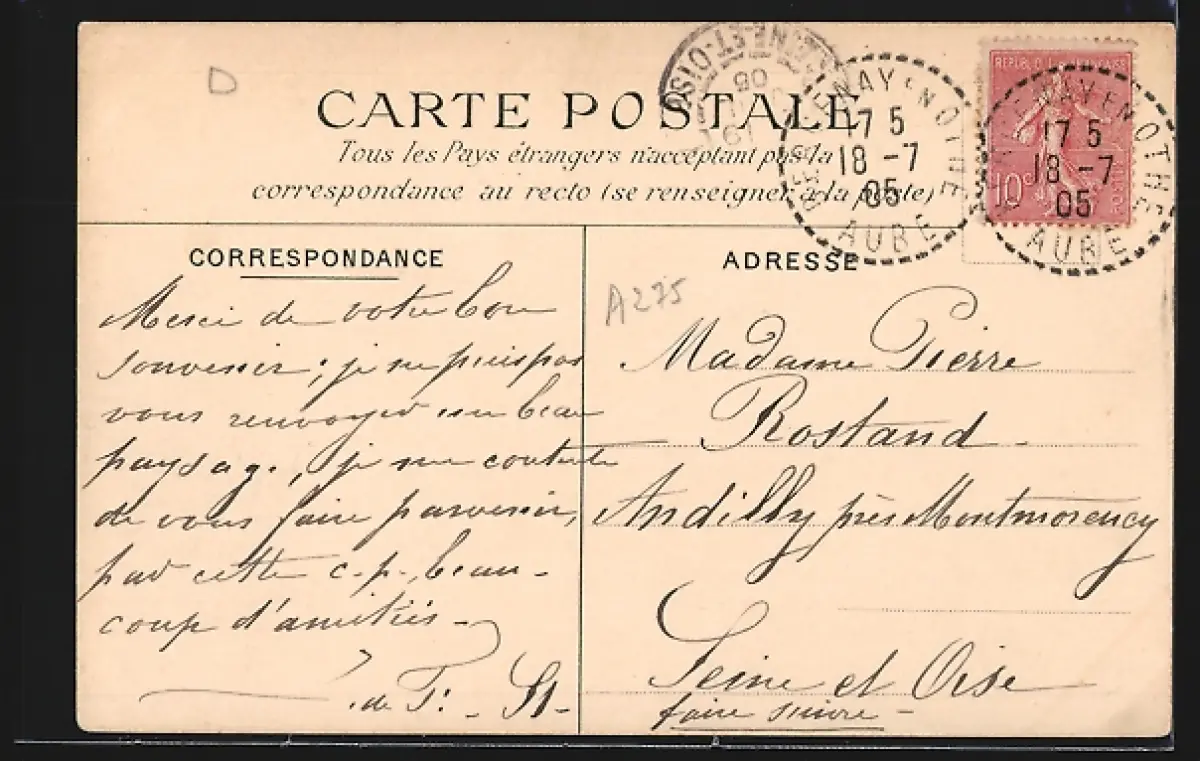 D
CARTE POSTALE
Tous les Pays étrangers n'acceptant pas la
correspondance au recto (se renseigner à la poste)
SEINE-ET-OISE
17 5
18 -7
05
AUBE
REPUBLIQUE FRANÇAISE
10c
17 5
18 -7
05
AUBE
CORRESPONDANCE
Merci de votre bon
souvenir; je ne puis pas
vous renvoyer un beau
paysage, je me contente
de vous faire parvenir,
par cette c.p., beau-
coup d'amitiés -
de F: - St -
ADRESSE
A275
Madame Pierre
Rostand -
Andilly près Montmorency
Seine et Oise
faire suivre -